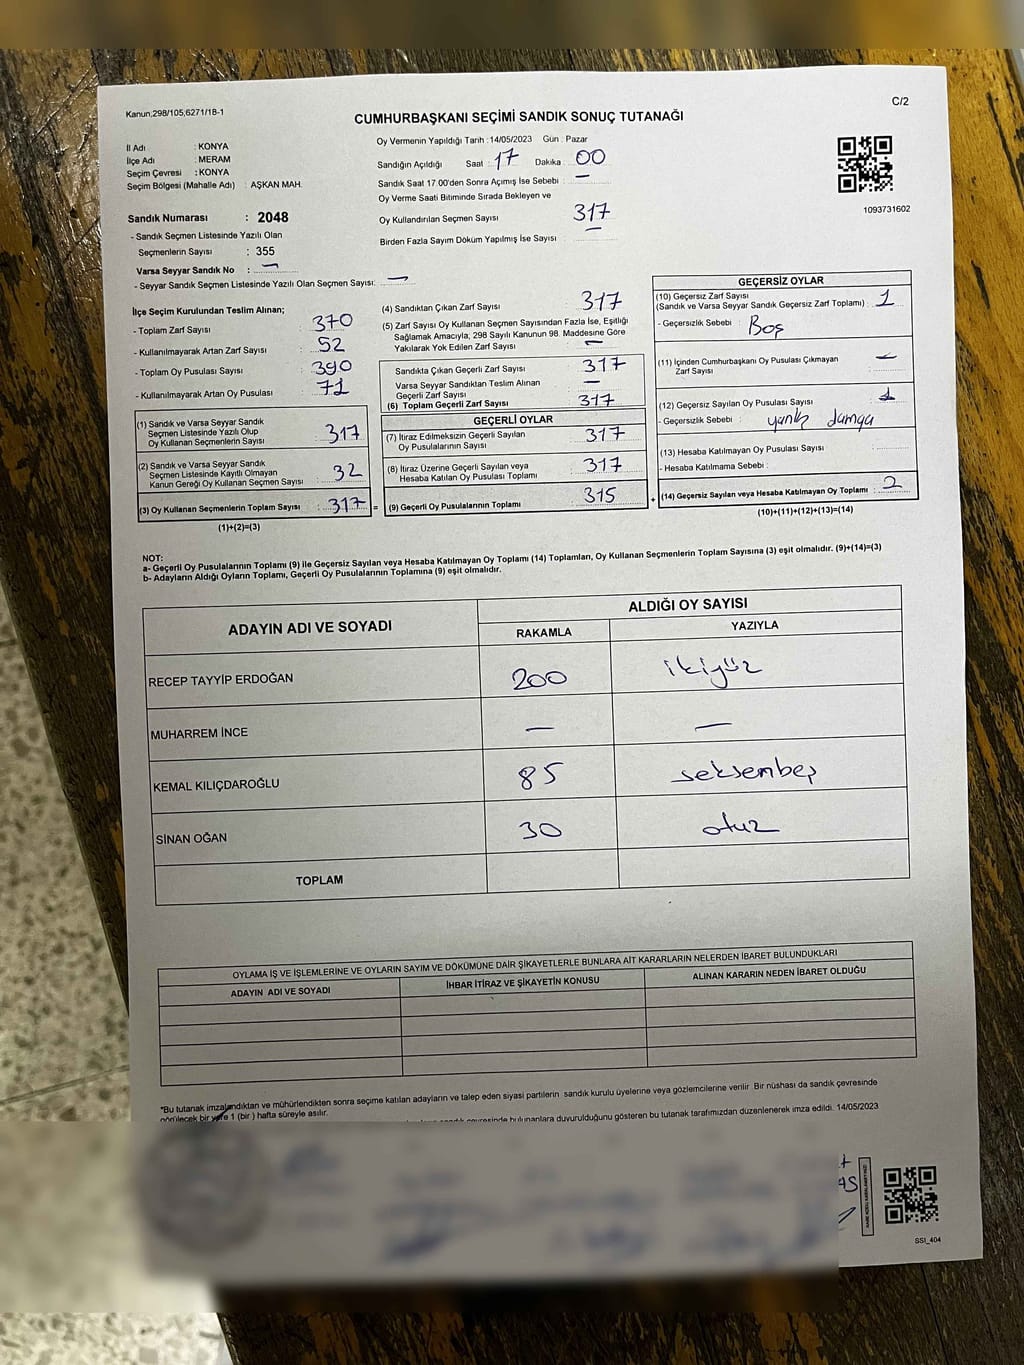 Kanun;298/105;6271/18-1
C/2
CUMHURBAŞKANI SEÇİMİ SANDIK SONUÇ TUTANAĞI
İl Adı : KONYA
İlçe Adı : MERAM
Seçim Çevresi : KONYA
Seçim Bölgesi (Mahalle Adı) : AŞKAN MAH.
Sandık Numarası : 2048
- Sandık Seçmen Listesinde Yazılı Olan
Seçmenlerin Sayısı : 355
Varsa Seyyar Sandık No : —
- Seyyar Sandık Seçmen Listesinde Yazılı Olan Seçmen Sayısı: —
Oy Vermenin Yapıldığı Tarih : 14/05/2023 Gün : Pazar
Sandığın Açıldığı Saat : 17 Dakika : 00
Sandık Saat 17.00'den Sonra Açımış İse Sebebi : —
Oy Verme Saati Bitiminde Sırada Bekleyen ve
Oy Kullandırılan Seçmen Sayısı 317
Birden Fazla Sayım Döküm Yapılmış İse Sayısı : —
1093731602
İlçe Seçim Kurulundan Teslim Alınan;
- Toplam Zarf Sayısı : 370
- Kullanılmayarak Artan Zarf Sayısı : 52
- Toplam Oy Pusulası Sayısı : 390
- Kullanılmayarak Artan Oy Pusulası : 71
(1) Sandık ve Varsa Seyyar Sandık
Seçmen Listesinde Yazılı Olup
Oy Kullanan Seçmenlerin Sayısı : 317
(2) Sandık ve Varsa Seyyar Sandık
Seçmen Listesinde Kayıtlı Olmayan
Kanun Gereği Oy Kullanan Seçmen Sayısı : 32
(3) Oy Kullanan Seçmenlerin Toplam Sayısı : 317 =
(1)+(2)=(3)
(4) Sandıktan Çıkan Zarf Sayısı : 317
(5) Zarf Sayısı Oy Kullanan Seçmen Sayısından Fazla İse, Eşitliği
Sağlamak Amacıyla, 298 Sayılı Kanunun 98. Maddesine Göre
Yakılarak Yok Edilen Zarf Sayısı : —
Sandıkta Çıkan Geçerli Zarf Sayısı : 317
Varsa Seyyar Sandıktan Teslim Alınan
Geçerli Zarf Sayısı : —
(6) Toplam Geçerli Zarf Sayısı : 317
GEÇERLİ OYLAR
(7) İtiraz Edilmeksizin Geçerli Sayılan
Oy Pusulalarının Sayısı : 317
(8) İtiraz Üzerine Geçerli Sayılan veya
Hesaba Katılan Oy Pusulası Toplamı : 317
(9) Geçerli Oy Pusulalarının Toplamı : 315 +
GEÇERSİZ OYLAR
(10) Geçersiz Zarf Sayısı
(Sandık ve Varsa Seyyar Sandık Geçersiz Zarf Toplamı) : 1
- Geçersizlik Sebebi : Boş
(11) İçinden Cumhurbaşkanı Oy Pusulası Çıkmayan
Zarf Sayısı : —
(12) Geçersiz Sayılan Oy Pusulası Sayısı : 1
- Geçersizlik Sebebi : yanlış damga
(13) Hesaba Katılmayan Oy Pusulası Sayısı :
- Hesaba Katılmama Sebebi :
(14) Geçersiz Sayılan veya Hesaba Katılmayan Oy Toplamı : 2
(10)+(11)+(12)+(13)=(14)
NOT:
a- Geçerli Oy Pusulalarının Toplamı (9) ile Geçersiz Sayılan veya Hesaba Katılmayan Oy Toplamı (14) Toplamları, Oy Kullanan Seçmenlerin Toplam Sayısına (3) eşit olmalıdır. (9)+(14)=(3)
b- Adayların Aldığı Oyların Toplamı, Geçerli Oy Pusulalarının Toplamına (9) eşit olmalıdır.
ADAYIN ADI VE SOYADI
ALDIĞI OY SAYISI
RAKAMLA YAZIYLA
RECEP TAYYİP ERDOĞAN 200 ikiyüz
MUHARREM İNCE — —
KEMAL KILIÇDAROĞLU 85 seksenbeş
SİNAN OĞAN 30 otuz
TOPLAM
OYLAMA İŞ VE İŞLEMLERİNE VE OYLARIN SAYIM VE DÖKÜMÜNE DAİR ŞİKAYETLERLE BUNLARA AİT KARARLARIN NELERDEN İBARET BULUNDUKLARI
ADAYIN ADI VE SOYADI İHBAR İTİRAZ VE ŞİKAYETİN KONUSU ALINAN KARARIN NEDEN İBARET OLDUĞU
*Bu tutanak imzalandıktan ve mühürlendikten sonra seçime katılan adayların ve talep eden siyasi partilerin sandık kurulu üyelerine veya gözlemcilerine verilir. Bir nüshası da sandık çevresinde
görülecek bir yere 1 (bir) hafta süreyle asılır.
bulunanlara duyurulduğunu gösteren bu tutanak tarafımızdan düzenlenerek imza edildi. 14/05/2023
SSI_404